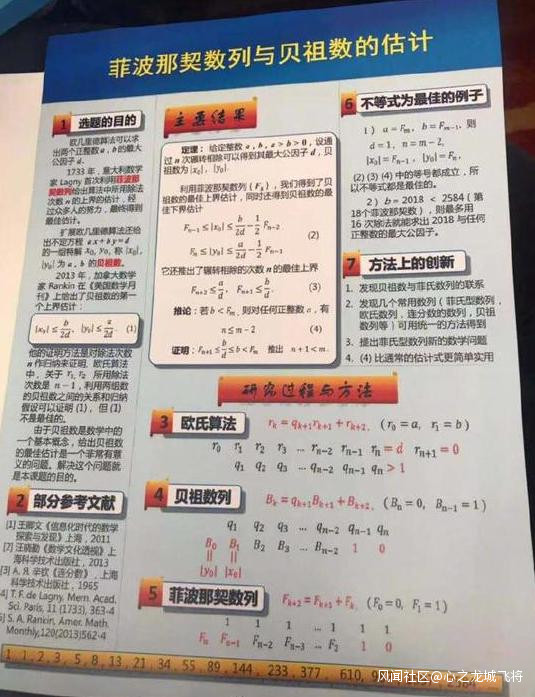 菲波那契数列与贝祖数的估计
1 选题的目的
欧几里德算法可以求
出两个正整数 a, b 的最大
公因子 d.
1733 年,意大利数学
家 Lagny 首次利用菲波那
契数列给出算法中所用除法
次数 n 的上界的估计,经
过众多人的努力,最终得到
最佳估计。
扩展欧几里德算法还给
出不定方程 ax+by=d
的一组特解 x₀, y₀, 称 |x₀|,
|y₀| 为 a, b 的贝祖数。
2013 年,加拿大数学
家 Rankin 在《美国数学月
刊》上给出了贝祖数的第一
个上界估计:
|x₀| ≤ b/2d, |y₀| ≤ a/2d. (1)
他的证明方法是对除法次数
n 作归纳来证明, 欧氏算法
中,关于 r₁, r₂ 所用除法
次数是 n − 1,利用两组数
的贝祖数之间的关系和归纳
假设可以证明 (1), 但 (1)
不是最佳的。
由于贝祖数是数学中的
一个基本概念,给出贝祖数
的最佳估计是一个非常有意
义的问题。解决这个问题就
是本课题的目的。
2 部分参考文献
[1] 王卿文《信息化时代的数学
探索与发现》上海,2011
[2] 汪晓勤《数学文化透视》上
海科学技术出版社,2013
[3] A. Я. 辛钦《连分数》,上海
科学技术出版社,1965
[4] T. F. de Lagny, Mem. Acad.
Sci. Paris, 11 (1733), 363-4
[5] S. A. Rankin, Amer. Math.
Monthly,120(2013)562-4
主要结果
定理: 给定整数 a, b, a > b > 0,设通
过 n 次辗转相除可以得到其最大公因子 d,贝
祖数为 |x₀|, |y₀|.
利用菲波那契数列 {Fₖ},我们得到了贝
祖数的最佳上界估计,同时还得到贝祖数的最
佳下界估计
Fₙ₋₁ ≤ |x₀| ≤ b/2d − 1/2 Fₙ₋₂
(2)
Fₙ ≤ |y₀| ≤ a/2d − 1/2 Fₙ₋₁
它还推出了辗转相除的次数 n 的最佳上界
Fₙ₊₂ ≤ a/d, Fₙ₊₁ ≤ b/d. (3)
推论: 若 b < Fₘ, 则对任何正整数 a,有
n ≤ m − 2 (4)
证明: Fₙ₊₁ ≤ b/d ≤ b < Fₘ 推出 n + 1 < m.
6 不等式为最佳的例子
1) a = Fₘ, b = Fₘ₋₁, 则
d = 1, n = m − 2,
|x₀| = Fₙ₋₁, |y₀| = Fₙ.
(2) (3) (4) 中的等号都成立,所
以不等式都是最佳的。
2) b = 2018 < 2584 (第
18个菲波那契数),则最多用
16 次除法就能求出 2018 与任何
正整数的最大公因子。
7 方法上的创新
1. 发现贝祖数与菲氏数列的联系
2. 发现几个常用数列(菲氏型数列,
欧氏数列,连分数的数列,贝祖
数列等)可用统一的方法得到
3. 提出菲氏型数列新的数学问题
4. (4) 比通常的估计式更简单实用
研究过程与方法
3 欧氏算法 rₖ = qₖ₊₁rₖ₊₁ + rₖ₊₂, (r₀ = a, r₁ = b)
r₀ r₁ r₂ r₃ … rₙ₋₂ rₙ₋₁ rₙ = d rₙ₊₁ = 0
q₁ q₂ q₃ … qₙ₋₂ qₙ₋₁ qₙ > 1
4 贝祖数列 Bₖ = qₖ₊₁Bₖ₊₁ + Bₖ₊₂, (Bₙ = 0, Bₙ₋₁ = 1)
q₁ q₂ q₃ … qₙ₋₂ qₙ₋₁ qₙ
B₀ B₁ B₂ B₃ … Bₙ₋₂ 1 0
|| ||
|y₀| |x₀|
5 菲波那契数列 Fₖ₊₂ = Fₖ₊₁ + Fₖ, (F₀ = 0, F₁ = 1)
1 1 1 … 1 1 1
Fₙ Fₙ₋₁ Fₙ₋₂ Fₙ₋₃ … F₂ 1 0
1, 1, 2, 3, 5, 8, 13, 21, 34, 55, 89, 144, 233, 377, 610,
风闻社区@心之龙城飞将